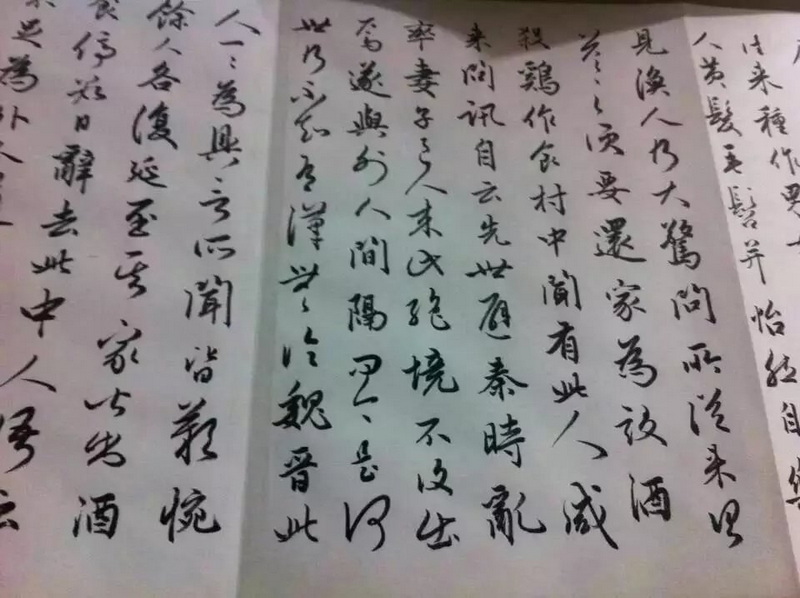 往来種作男女
人黄髮垂髫并怡然自樂
見漁人乃大驚問所從来具
答之便要還家為設酒
殺鷄作食村中聞有此人咸
来問訊自云先世避秦時亂
率妻子邑人来此絶境不復出
焉遂與外人間隔問今是何
世乃不知有漢無論魏晋此
人一一為具言所聞皆歎惋
餘人各復延至其家皆出酒
食停数日辭去此中人語云
不足為外人道